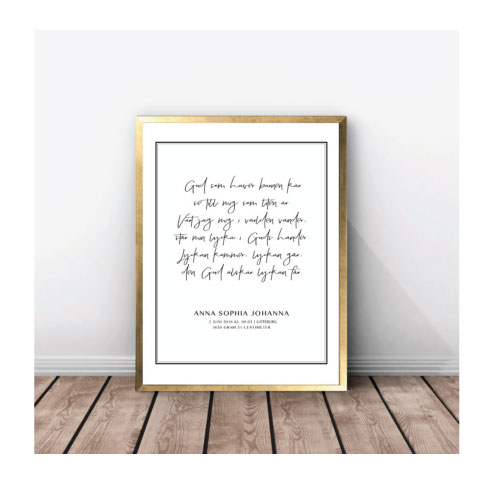 Gud som haver barnen kär
se till mig som liten är
Vart jag mig i världen vänder,
står min lycka i Guds händer
Lyckan kommer, lyckan går,
den Gud älskar lyckan får
ANNA SOPHIA JOHANNA
2 JUNI 2018 KL. 09.03 | GÖTEBORG
3650 GRAM 51 CENTIMETER